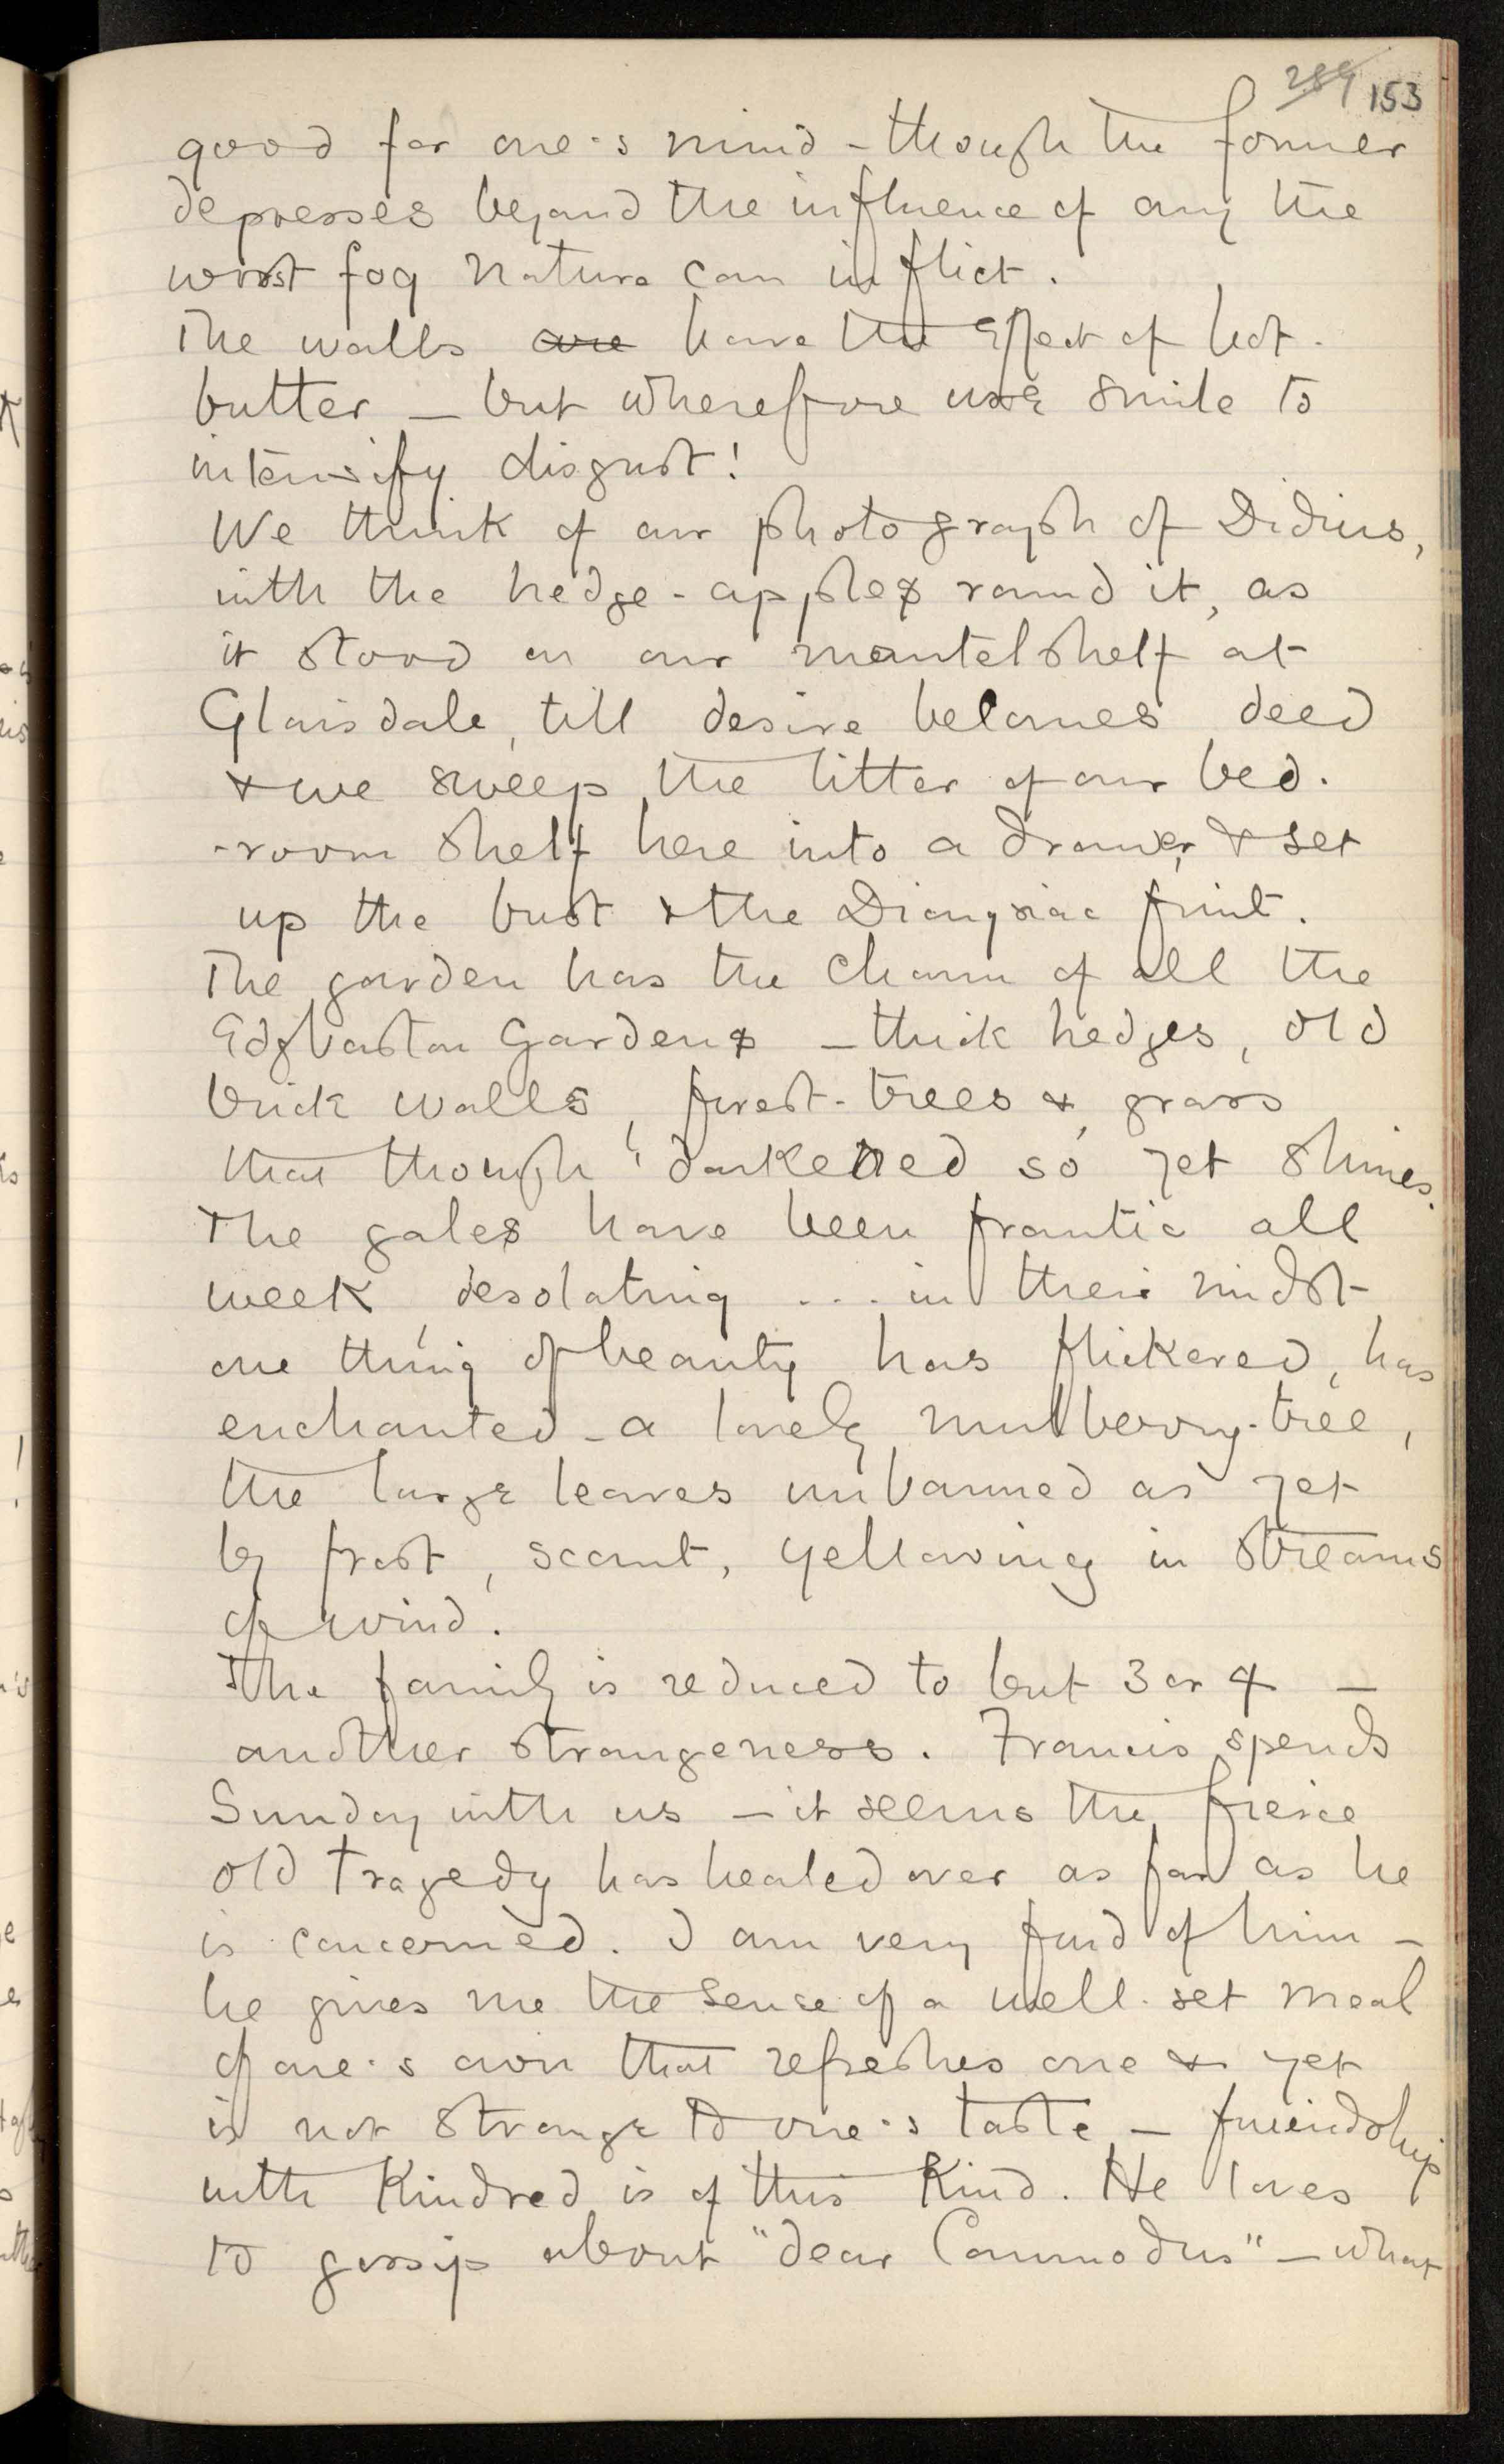 289 153
good for one's mind – though the former
depresses beyond the influence of any the
worst fog Nature can inflict.
The walls are have the effect of hot-
butter – but wherefore use smile to
intensify disgust!
We think of our photograph of Didius,
with the hedge-apples round it, as
it stood on our mantelshelf at
Glaisdale, till desire becomes deed
& we sweep the litter of our bed-
-room shelf here into a drawer & set
up the bust & the Dionysiac fruit.
The garden has the charm of all the
Edgbaston Gardens – thick hedges, old
brick walls, forest-trees & grass
that though 'darkened so' yet shines.
The gales have been frantic all
week, desolating ... in their midst
one thing of beauty has flickered, has
enchanted – a lovely mulberry-tree,
the large leaves unbanned as yet
by frost, scant, yellowing in streams
of wind.
The family is reduced to but 3 or 4 –
another strangeness. Francis spends
Sunday with us – it seems the fierce
old tragedy has healed over as far as he
is concerned. I am very fond of him –
he gives me the sense of a well-set meal
of one's own that refreshes one & yet
is not strange to one's taste – friendship
with Kindred is of this Kind. He loves
to gossip about "dear Commodus" – what